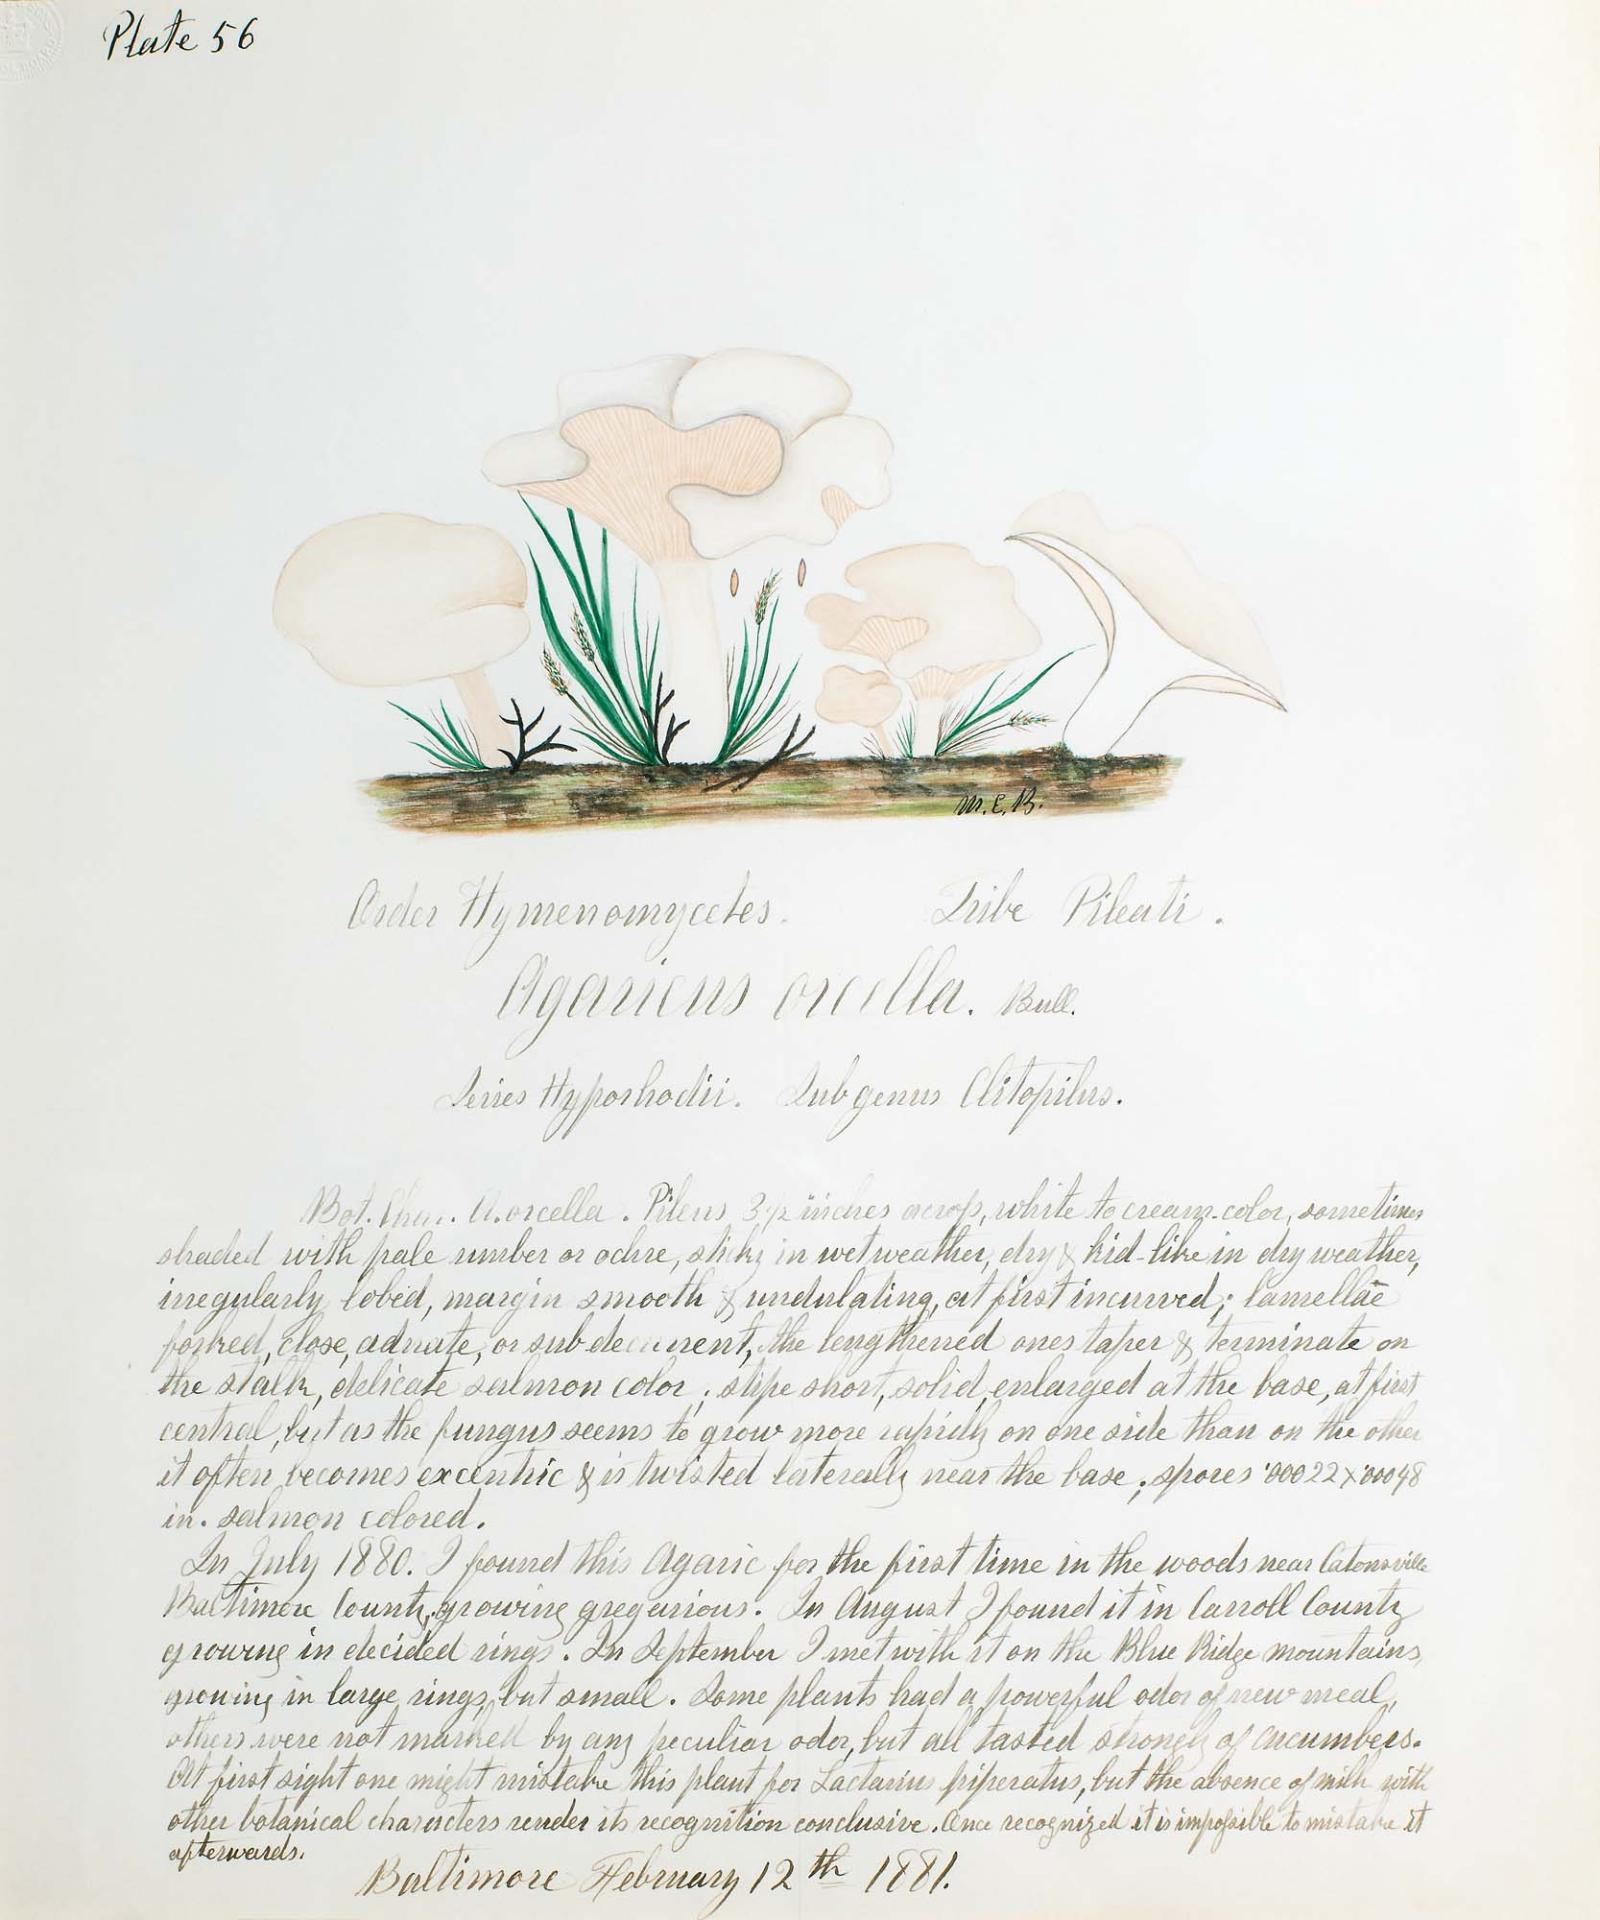 Plate 56
M.E.B.
Order Hymenomycetes. Tribe Pileati.
Agaricus orcella. Bull.
Series Hyporhodii. Subgenus Clitopilus.
Bot. Char. A. orcella. Pileus inches across, white to cream-color, sometimes
shaded with pale umber or ochre, sticky in wet weather, dry & kid-like in dry weather,
irregularly lobed, margin smooth & undulating, at first incurved; lamellae
forked, close, adnate, or sub decurrent, the lengthened ones taper & terminate on
the stalk, delicate salmon color; stipe short, solid, enlarged at the base, at first
central, but as the fungus seems to grow more rapidly on one side than on the other
it often becomes excentric & is twisted laterally near the base; spores '00022x'00048
in. salmon colored.
In July 1880. I found this Agaric for the first time in the woods near Catonsville
Baltimore County, growing gregarious. In August I found it in Carroll County
growing in decided rings. In September I met with it on the Blue Ridge mountains,
growing in large rings, but small. Some plants had a powerful odor of new meal,
others were not marked by any peculiar odor, but all tasted strongly of cucumbers.
At first sight one might mistake this plant for Lactarius piperatus, but the absence of milk with
other botanical characters render its recognition conclusive. Once recognized it is impossible to mistake it
afterwards.
Baltimore February 12th 1881.